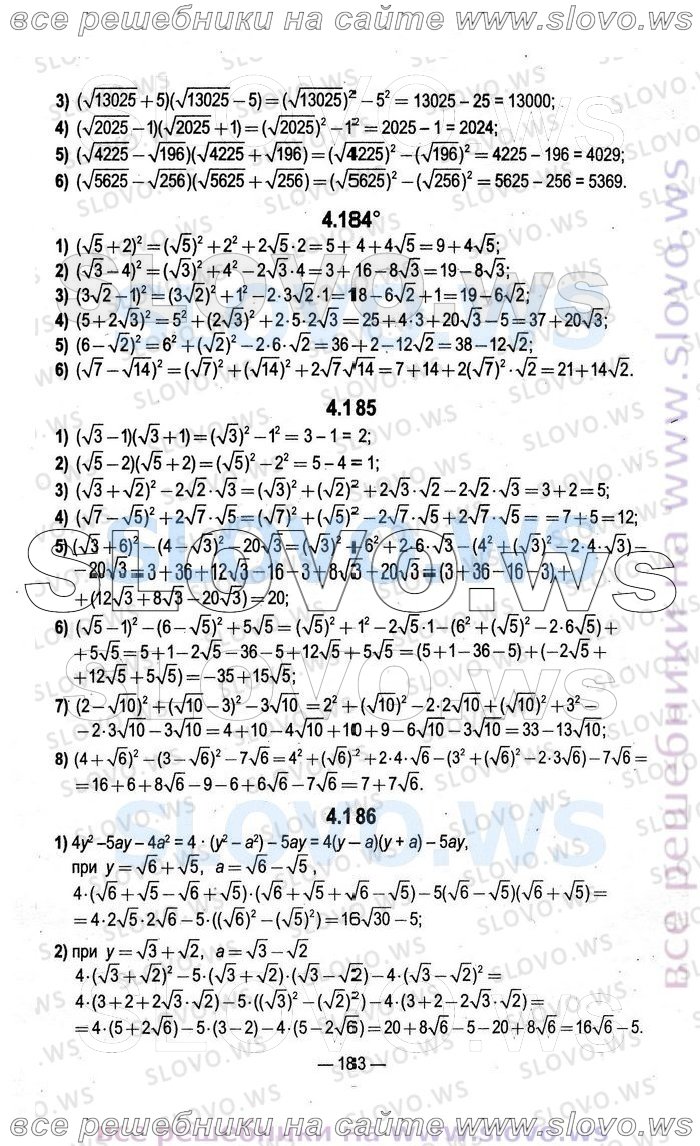 все решебники на сайте www.slovo.ws
3) (√13025 + 5)(√13025 – 5) = (√13025)² – 5² = 13025 – 25 = 13000;
4) (√2025 – 1)(√2025 + 1) = (√2025)² – 1² = 2025 – 1 = 2024;
5) (√4225 – √196)(√4225 + √196) = (√4225)² – (√196)² = 4225 – 196 = 4029;
6) (√5625 – √256)(√5625 + √256) = (√5625)² – (√256)² = 5625 – 256 = 5369.
4.184°
1) (√5 + 2)² = (√5)² + 2² + 2√5 · 2 = 5 + 4 + 4√5 = 9 + 4√5;
2) (√3 – 4)² = (√3)² + 4² – 2√3 · 4 = 3 + 16 – 8√3 = 19 – 8√3;
3) (3√2 – 1)² = (3√2)² + 1² – 2 · 3√2 · 1 = 18 – 6√2 + 1 = 19 – 6√2;
4) (5 + 2√3)² = 5² + (2√3)² + 2 · 5 · 2√3 = 25 + 4 · 3 + 20√3 – 5 = 37 + 20√3;
5) (6 – √2)² = 6² + (√2)² – 2 · 6 · √2 = 36 + 2 – 12√2 = 38 – 12√2;
6) (√7 – √14)² = (√7)² + (√14)² + 2√7√14 = 7 + 14 + 2(√7)² · √2 = 21 + 14√2.
4.185
1) (√3 – 1)(√3 + 1) = (√3)² – 1² = 3 – 1 = 2;
2) (√5 – 2)(√5 + 2) = (√5)² – 2² = 5 – 4 = 1;
3) (√3 + √2)² – 2√2 · √3 = (√3)² + (√2)² + 2√3 · √2 – 2√2 · √3 = 3 + 2 = 5;
4) (√7 – √5)² + 2√7 · √5 = (√7)² + (√5)² – 2√7 · √5 + 2√7 · √5 = = 7 + 5 = 12;
5) (√3 + 6)² – (4 – √3)² – 20√3 = (√3)² + 6² + 2 · 6 · √3 – (4² + (√3)² – 2 · 4 · √3) –
– 20√3 = 3 + 36 + 12√3 – 16 – 3 + 8√3 + 20√3 = (3 + 36 – 16 – 3) +
+ (12√3 + 8√3 – 20√3) = 20;
6) (√5 – 1)² – (6 – √5)² + 5√5 = (√5)² + 1² – 2√5 · 1 – (6² + (√5)² – 2 · 6√5) +
+ 5√5 = 5 + 1 – 2√5 – 36 – 5 + 12√5 + 5√5 = (5 + 1 – 36 – 5) + (–2√5 +
+ 12√5 + 5√5) = –35 + 15√5;
7) (2 – √10)² + (√10 – 3)² – 3√10 = 2² + (√10)² – 2 · 2√10 + (√10)² + 3² –
– 2 · 3√10 – 3√10 = 4 + 10 – 4√10 + 10 + 9 – 6√10 – 3√10 = 33 – 13√10;
8) (4 + √6)² – (3 – √6)² – 7√6 = 4² + (√6)² + 2 · 4 · √6 – (3² + (√6)² – 2 · 3√6) – 7√6 =
= 16 + 6 + 8√6 – 9 – 6 + 6√6 – 7√6 = 7 + 7√6.
4.186
1) 4y² – 5ay – 4a² = 4 · (y² – a²) – 5ay = 4(y – a)(y + a) – 5ay,
при y = √6 + √5, a = √6 – √5,
4 · (√6 + √5 – √6 + √5) · (√6 + √5 + √6 – √5) – 5(√6 – √5)(√6 + √5) =
= 4 · 2√5 · 2√6 – 5 · ((√6)² – (√5)²) = 16√30 – 5;
2) при y = √3 + √2, a = √3 – √2
4 · (√3 + √2)² – 5 · (√3 + √2) · (√3 – √2) – 4 · (√3 – √2)² =
4 · (3 + 2 + 2√3 · √2) – 5 · ((√3)² – (√2)²) – 4 · (3 + 2 – 2√3 · √2) =
= 4 · (5 + 2√6) – 5 · (3 – 2) – 4 · (5 – 2√6) = 20 + 8√6 – 5 – 20 + 8√6 = 16√6 – 5.
— 183 —
все решебники на www.slovo.ws
SLOVO.WS
все решебники на сайте www.slovo.ws